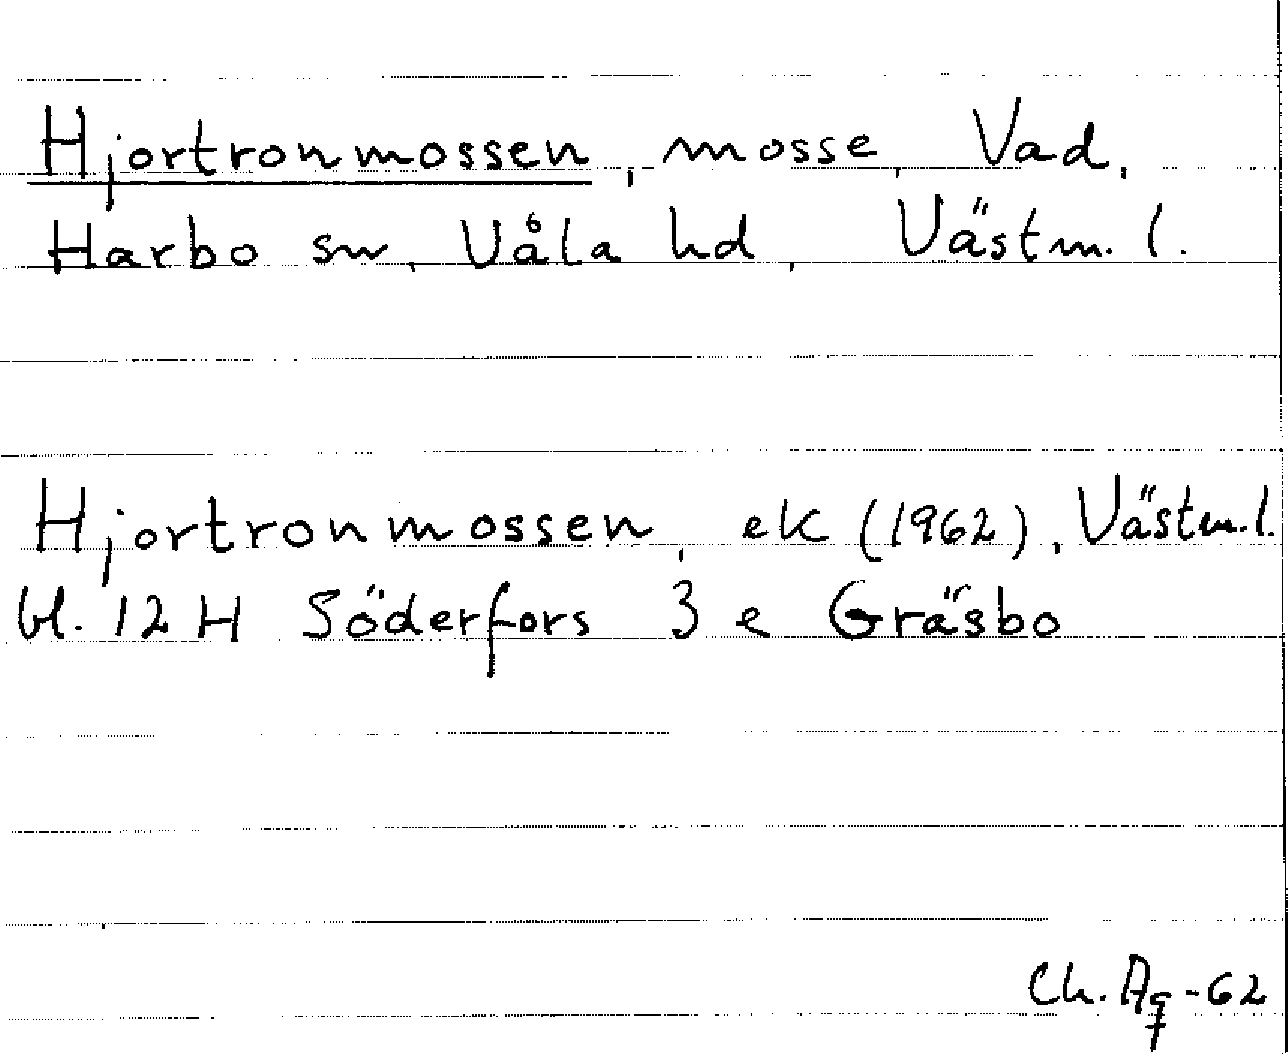 Hjortronmossen, mosse, Vad,
Harbo sn, Våla hd, Västm. l.
Hjortronmossen, ek (1962), Västm. l.
bl. 12 H Söderfors 3 e Gräsbo
Ch. Aq -62